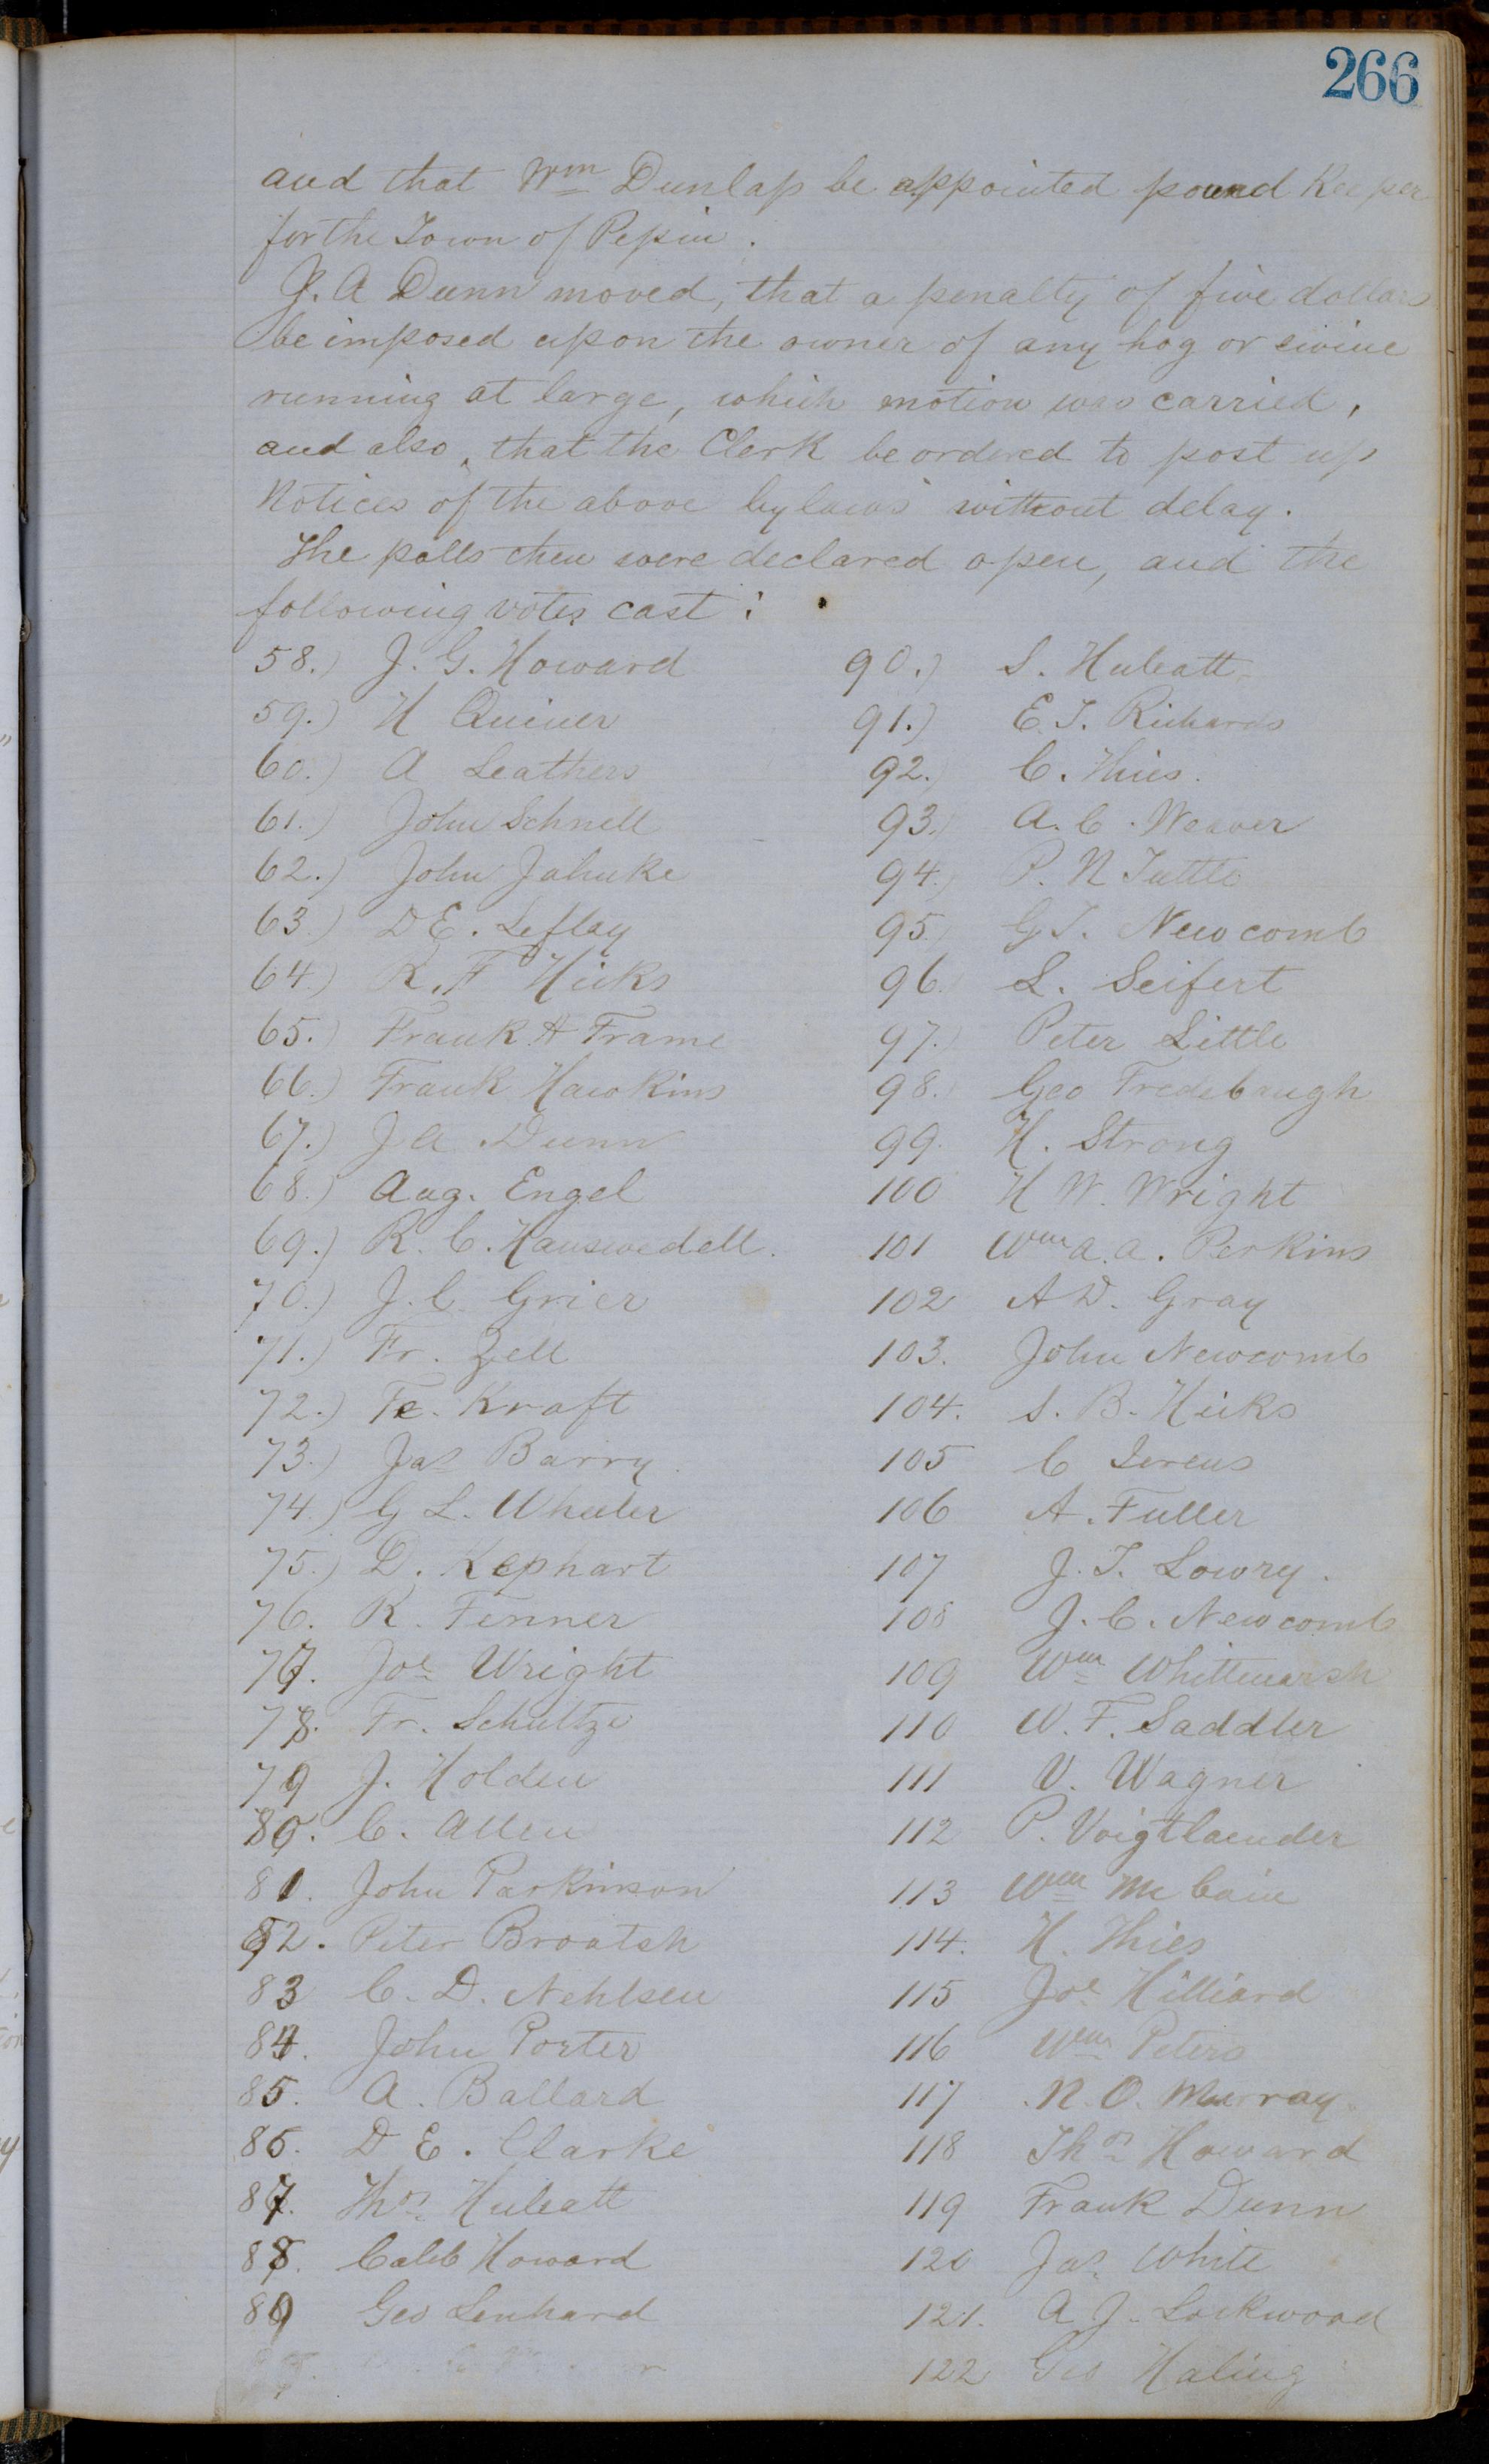 266
and that Wm Dunlap be appointed pound Keeper
for the Town of Pepin.
J. A Dunn moved, that a penalty of five dollars
be imposed upon the owner of any hog or swine
running at large, which motion was carried,
and also, that the Clerk be ordered to post up
Notices of the above bylaws without delay.
The polls then were declared open, and the
following votes cast:
58.) J. G. Howard
59.) H Quiner
60.) A Leathers
61.) John Schnell
62.) John Jahnke
63.) D E. Leflay
64.) R. F Hicks
65.) Frank H Frame
66.) Frank Hawkins
67.) J A Dunn
68.) Aug. Engel
69.) R. C. Hauswedell.
70.) J. C. Grier
71.) Fr. Zell
72.) Fe. Kraft
73.) Jas Barry
74.) G L. Wheeler
75.) D. Kephart
76. K. Fenner
77. Joe Wright
78. Fr. Schultze
79 J. Holden
80. C. Allen
81. John Parkinson
82. Peter Broatsh
83 C. D. Nehlsen
84. John Porter
85. A. Ballard
86. D E. Clarke
87. Thos. Huleatt
88. Caleb Howard
89 Geo Lenhard
90.) S. Huleatt
91.) E. T. Richards
92.) C. Thies.
93.) A. C. Weaver
94.) P. N Tuttle
95.) G T. Newcomb
96.) L. Seifert
97.) Peter Little
98.) Geo Fredebaugh
99. H. Strong
100 H W. Wright
101 Wm A. A. Perkins
102 A D. Gray
103. John Newcomb
104. S. B. Hicks
105 C
106 A. Fuller
107 J. T. Lowry.
108 J. C. Newcomb
109 Wm Whittmarsh
110 W. F. Saddler
111 V. Wagner
112 P. Voigtlaender
113 Wm McCain
114. H. Thies
115 Joe Hilliard
116 Wm Peters
117 N. O. Murray
118 Thos Howard
119 Frank Dunn
120 Jas. White
121. A J. Lockwood
122 Geo Haling